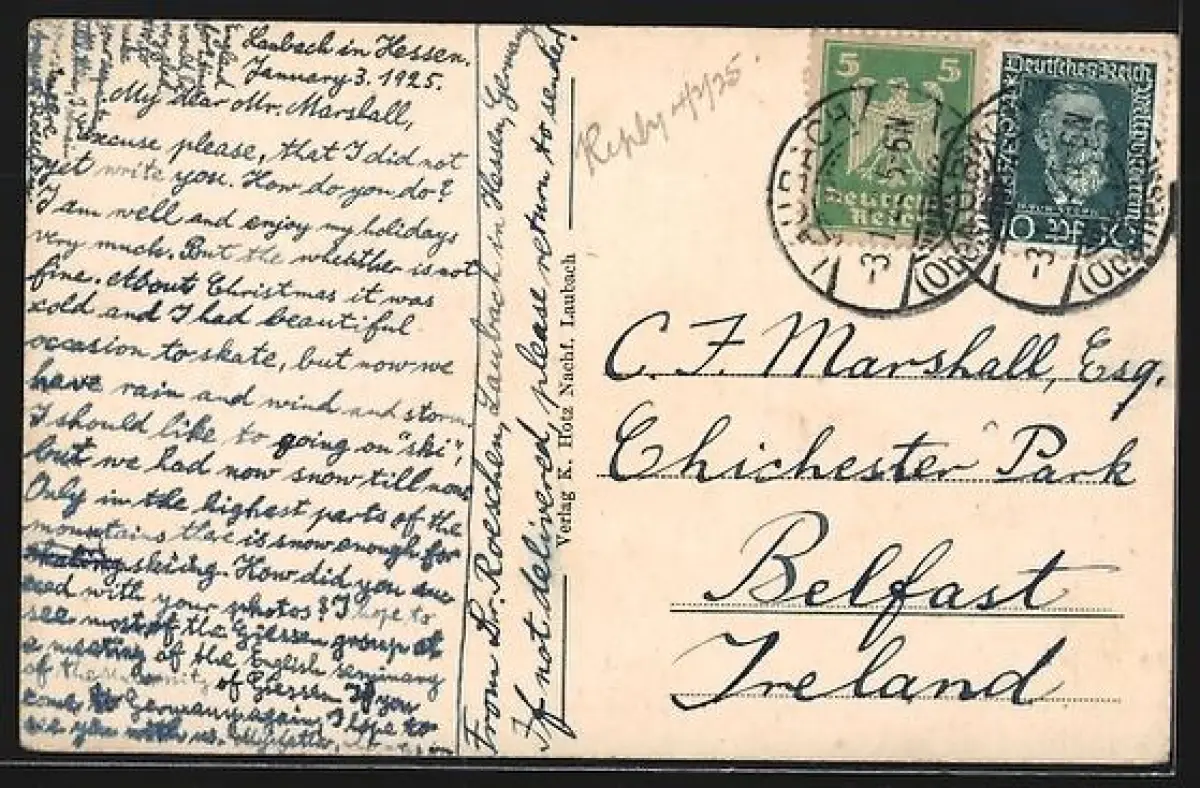 Laubach in Hessen.
January 3. 1925.
My dear Mr. Marshall,
excuse please, that I did not
yet write you. How do you do?
I am well and enjoy my holidays
very much. But the whether is not
fine. About Christmas it was
cold and I had beautiful
occasion to skate, but now we
have rain and wind and storm.
I should like to going on "ski",
but we had now snow till now
Only in the highest parts of the
mountains there is snow enough for
skating skiing. How did you suc
ceed with your photos? I hope to
see most of the Giessen group at
a meeting of the English seminary
of the University of Giessen If you
come to Germany again I hope to
see you with us.
From Dr. Roeschen, Laubach in Hessen, Germany
If not delivered, please return to sender!
Verlag K. Hotz Nachf. Laubach
Reply 4/2/25.
5 5
Deutsches
Reich
Deutsches Reich
Weltpostverein
10 Pf
LAUBACH
-3.1.25.6-7N
(Oberhessen)
LAUBACH
-3.1.25.6-7N
(Oberhessen)
C. F. Marshall, Esq.
Chichester Park
Belfast
Ireland